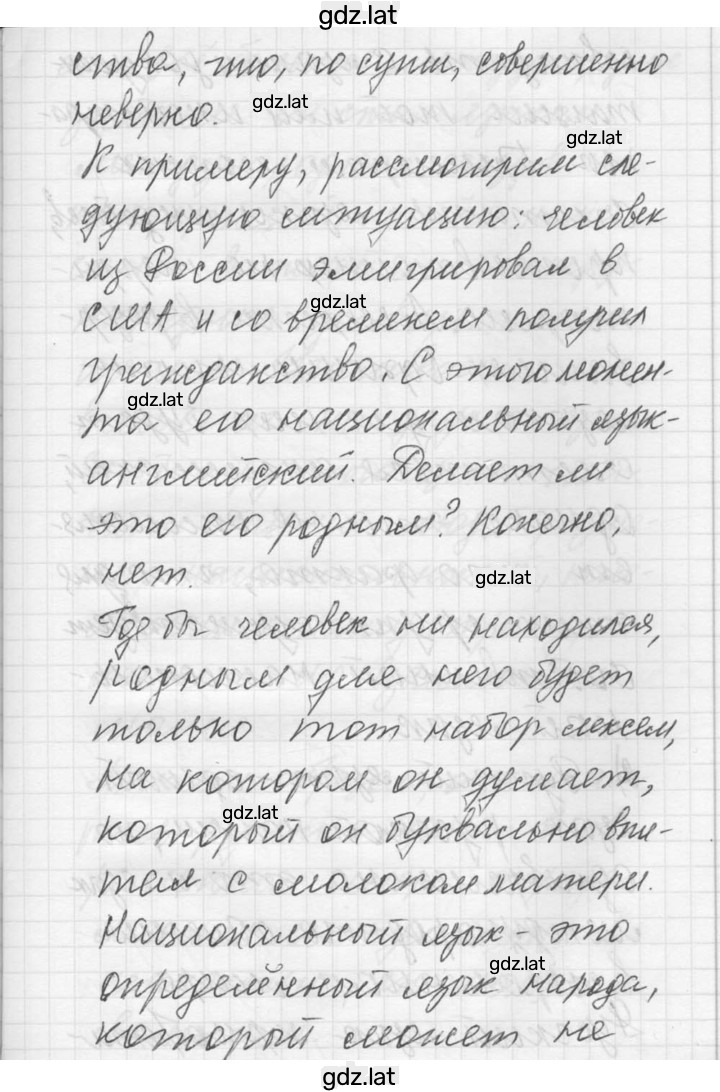 gdz.lat
ства, что, по сути, совершенно
gdz.lat
неверно.
gdz.lat
К примеру, рассмотрим сле-
дующую ситуацию: человек
из России эмигрировал в
gdz.lat
США и со временем получил
гражданство. С этого момен-
gdz.lat
та его национальный язык-
английский. Делает ли
это его родным? Конечно,
нет.
gdz.lat
Где бы человек ни находился,
родным для него будет
только тот набор лексем,
на котором он думает,
gdz.lat
который он буквально впи-
тал с молоком матери.
Национальный язык - это
gdz.lat
определённый язык народа,
который может не
gdz.lat